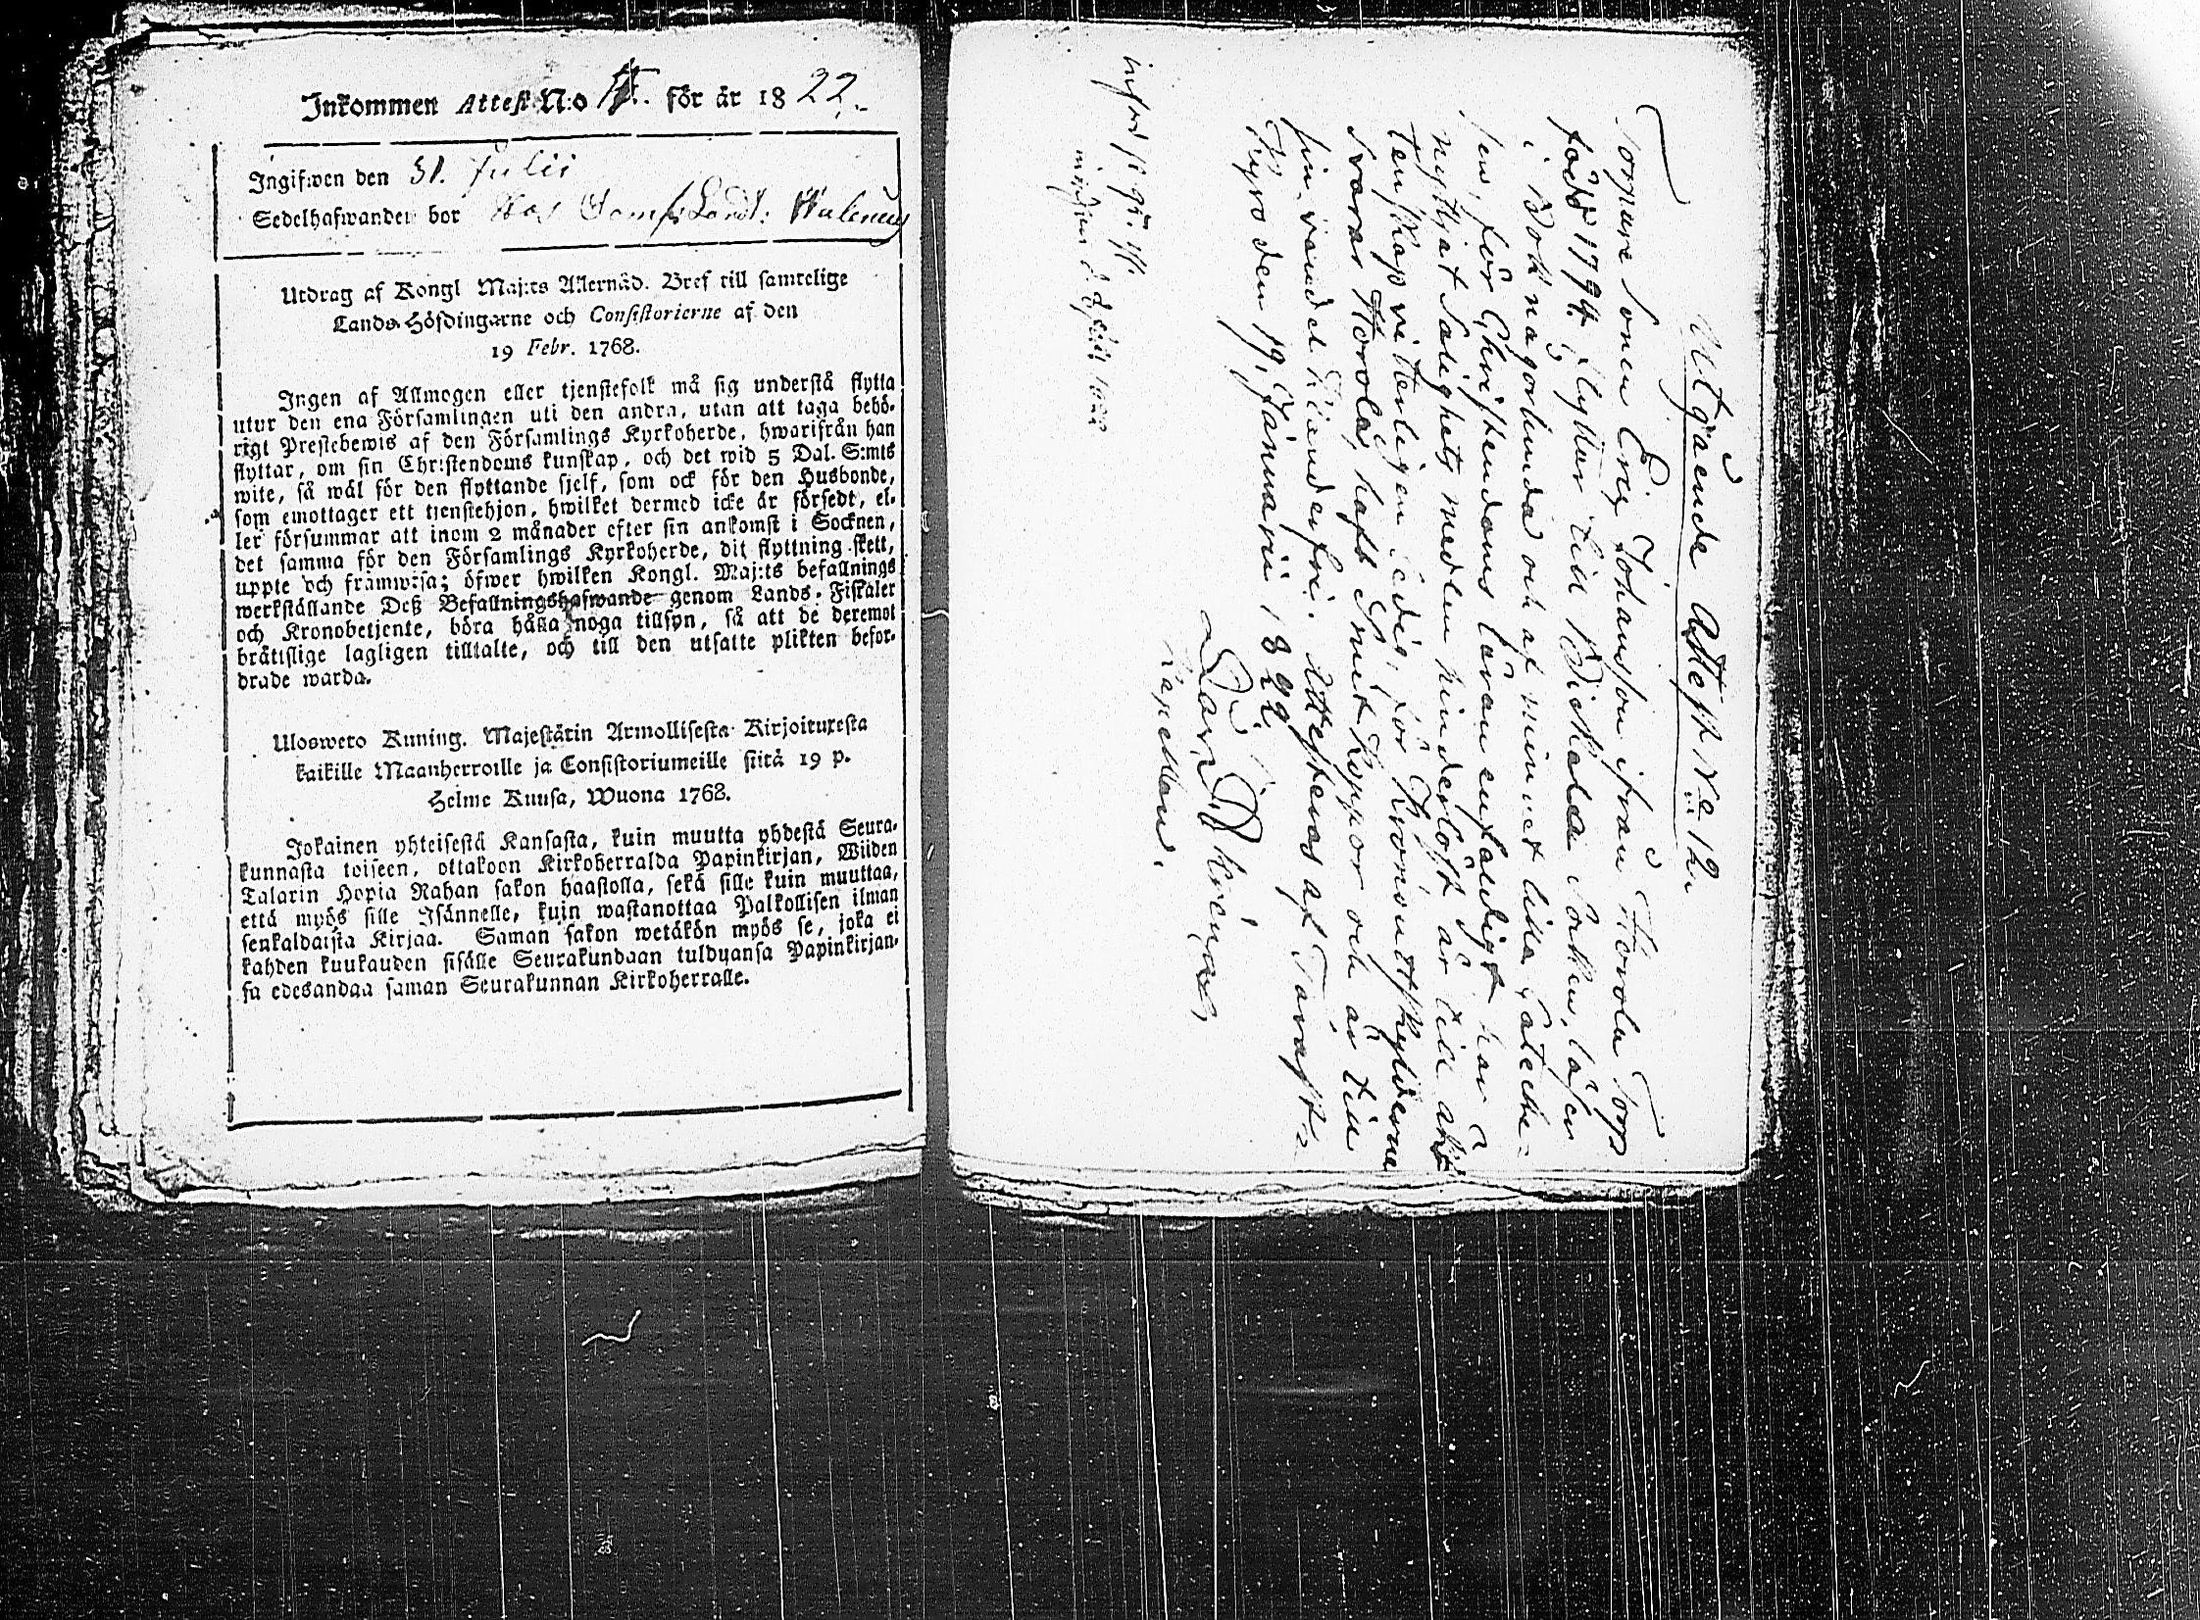 Inkommen Attest N:o för år 1822.
Ingifwen den 31. Julii
Sedelhafwanden bor Hos
Utdrag af Kongl Maj:ts Allernåd. Bref till samtelige
Lands-Höfdingarne och Consistorierne af den
19 Febr. 1768.
Ingen af Allmogen eller tjenstefolk må sig understå flytta
utur den ena Församlingen uti den andra, utan att taga behö-
rigt Prestebewis af den Församlings Kyrkoherde, hwarifrån han
flyttar, om sin Christendoms kunskap, och det wid 5 Dal. S:mts
wite, så wäl för den flyttande sjelf, som ock för den Husbonde,
som emottager ett tjenstehjon, hwilket dermed icke är försedt, el-
ler försummar att inom 2 månader efter sin ankomst i Socknen,
det samma för den Församlings Kyrkoherde, dit flyttning skett,
uppte och framwisa; öfwer hwilken Kongl. Maj:ts befallnings
werkställande Deß Befallningshafwande genom Lands-Fiskaler
och Kronobetjente, böra hålla noga tillsyn, så att de deremot
brättslige lagligen tilltalte, och till den utsatte plikten befor-
drade warda.
Uloswero Kuning. Majestätin Armollisesta Kirjoituxesta
kaikille Maanherroille ja Consistoriumeille siitä 19 p.
Helme Kuusa, Wuona 1768.
Jokainen yhteisestä Kansasta, kuin muutta yhdestä Seura-
kunnasta toiseen, ottakoon Kirkoherralda Papinkirjan, Wiiden
Talarin Hopia Rahan sakon haastolla, sekä sille kuin muuttaa,
että myös sille Isännelle, kuin wastanottaa Palkollisen ilman
senkaldaista Kirjaa. Saman sakon wetäkön myös se, joka ei
kahden kuukauden sisälle Seurakundaan tulduansa Papinkirjan-
sa edesandaa saman Seurakunnan Kirkoherralle.
Utgående Attest No 12.
Torpare Sonen Eric Johansson ifrån Horvola Torp
född 1794 flyttar till Bickala Socken, läser
i Bok någorlunda och af minnet lilla Cateche-
sen, för Christendoms lären enfaldigt har å
nyttjat Salighets medlen hinderlöst år till äkt
tenskap vitterligen ledig, för Kronoutskylderne
svarar Horvola, haft Smitt Koppor och är till
sin vandel frei. Attesteras af Tavast-
Kyro den 19 Januarii 1822
Kapellan.